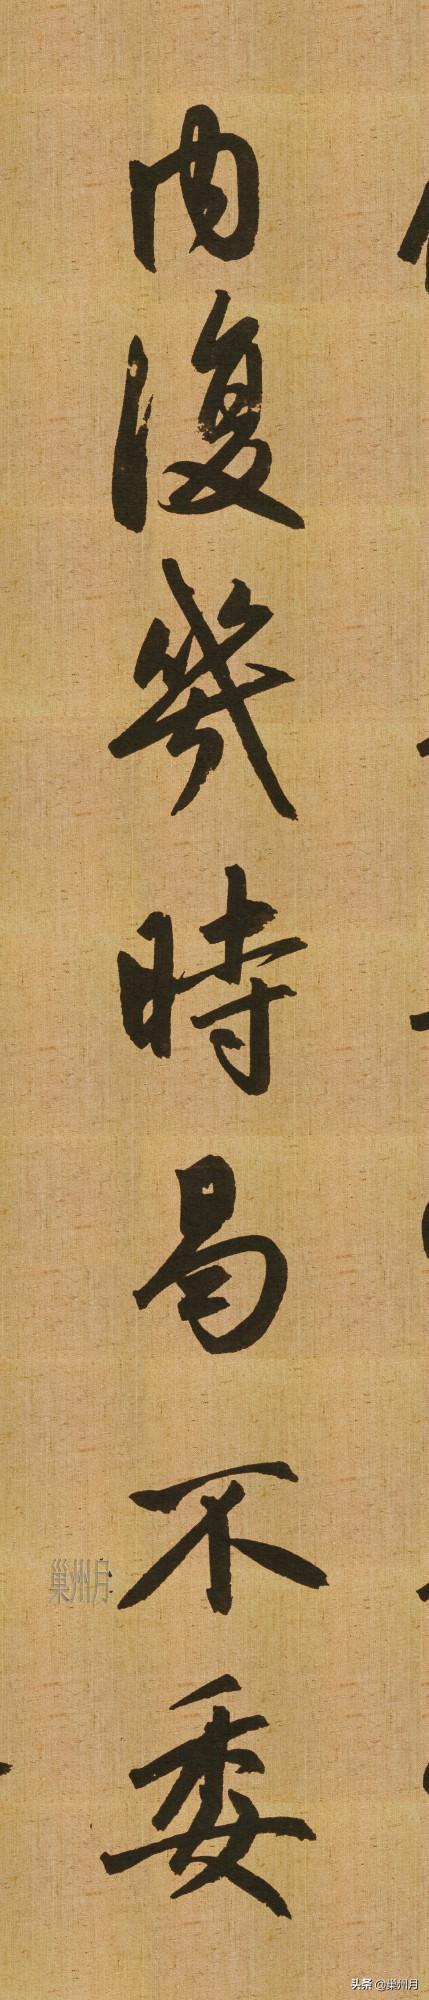 内復幾時曷不委
巢州月
头条 @巢州月